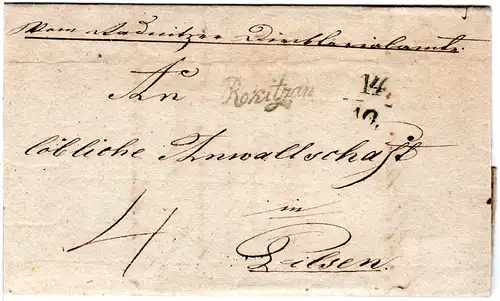 Vom Radnitzer Direktorialamte.
An
Rokitzan
14.
10.
löbliche Anwallschaft
4
in
Pilsen.